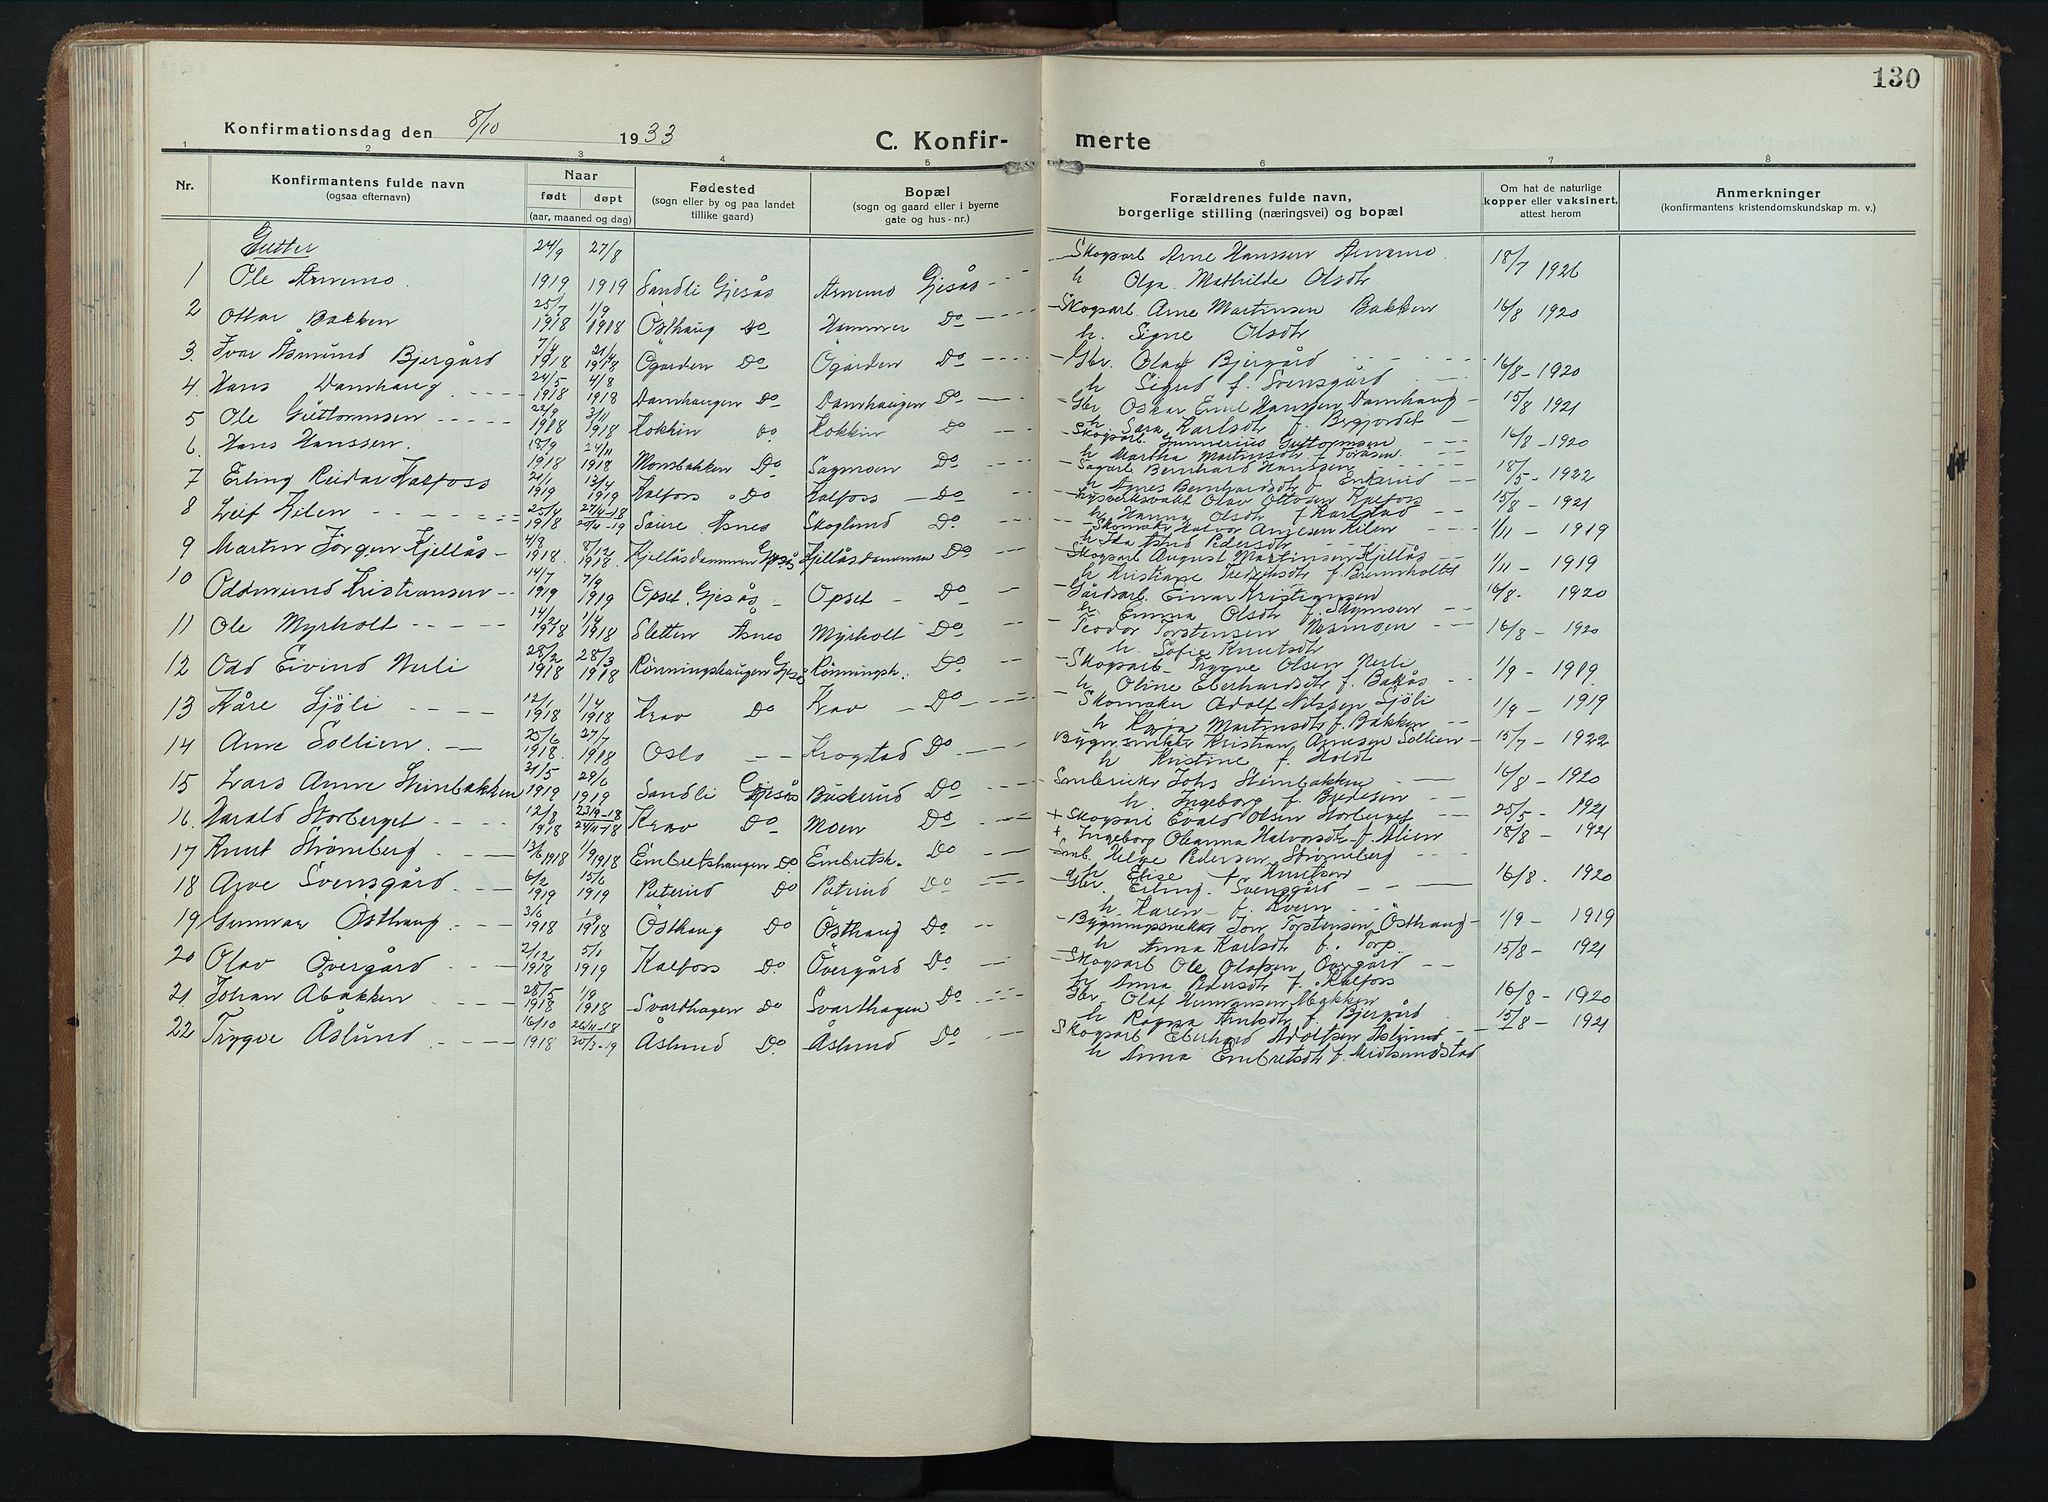 130
Konfirmationsdag den 8/10 1933
C. Konfir- merte
1 2 3 4 5 6 7 8
Nr. Konfirmantens fulde navn (ogsaa efternavn) Naar født døpt (aar, maaned og dag) Fødested (sogn eller by og paa landet tillike gaard) Bopæl (sogn og gaard eller i byerne gate og hus-nr.) Forældrenes fulde navn, borgerlige stilling (næringsvei) og bopæl Om hat de naturlige kopper eller vaksinert, attest herom Anmerkninger (konfirmantens kristendomskundskap m. v.)
Gutter
1 Ole Arnemo 24/9 1919 27/8 1919 Sandli Gjesås Arnemo Gjesås Skogarb. Arne Hanssen Arnemo 18/7 1926
h Olga Mathilde Olsdtr
2 Ottar Bakken 25/7 1918 1/9 1918 Östhaug Do Hammer Do Skogarb. Arne Martinsen Bakken 16/8 1920
h. Signe Olsdtr
3. Ivar Åsmund Bjergård 7/4 1918 21/4 1918 Ögarden Do Ögarden Do Gbr. Olav Bjergård 16/8 - 1920
h Sigrid f. Svensgård
4. Hans Damhaug 24/5 1918 4/8 1918 Damhaugen Do Damhaugen Do Gbr Oskar Emil Hanssen Damhaug 15/8 1921
h Sara Karlsdtr f. Brgjordet
5 Ole Guttormsen 22/9 1918 3/11 1918 Kokkin Do Kokkin Do Skogarb. Gunnerius Guttormsen 16/8 - 1920
h Martha Martinsdtr f. Toråsen
6. Hans Hanssen 18/9 1918 24/11 1918 Monsbakken Do Sagmoen Do Sagarb Bernhard Hanssen 18/5 - 1922
h Agnes Bernhardsdtr f Enkerud
7 Erling Reidar Kalfoss 21/1 1919 13/4 1919 Kalfoss Do Kalfoss Do Olav Ottosen Kalfoss 15/8 - 1921
h Hanna Olsdtr f Karlstad
8 Leif Kilen 25/4 1918 27/4-18 Söire Åsnes Skoglund Do Skomaker Halvor Kilen 1/11 - 1919
h Ida Astrid Pedersdtr
9 Martin Jörgen Kjellås 4/8 1918 8/12 1918 Kjellåsdammen Gjesås Kjellåsdammen Do Skogarb August Martinsen Kjellås 1/11 - 1919
h Kristiane Fredriksdtr f. Brennholtet
10 Oddmund Kristiansen 14/7 1919 7/9 1919 Opset Gjesås Opset Do Gårdsarb. Einar Kristiansen 16/8 - 1920
h. Emma Olsdtr f. Skymoen
11 Ole Myrholt 14/2 1918 1/4 1918 Sletten Åsnes Myrholt Do Teodor Torstensen Nesmoen 16/8 - 1920
h. Sofie Knutsdtr
12 Odd Eivind Nerli 28/2 1918 28/3 1918 Rönningshaugen Gjesås Rönningsh. Do Skogarb Trygve Olsen Nerli 1/9 - 1919
h Oline Eberhardsdtr f. Bakås
13 Kåre Sjöli 12/1 1918 1/4 1918 Krav Do Krav Do Skomaker Adolf Nilssen Sjöli 1/9 - 1919
h Kaja Martinsdtr f. Bakken
14 Arne Sollien 25/6 1918 27/7 1918 Oslo Krogstad Do Kristian Arnesen Sollien 15/7 - 1922
h Kristine f Holdt
15 Lars Arne Stenbakken 31/5 1919 29/6 1919 Sandli Gjesås Buskerud Do Johs Stenbakken 16/8 - 1920
h. Ingeborg f. Bredesen
16. Harald Storberget 12/8 1918 23/9-18 24/11-18 Krav Do Moen Do + Skogarb Evald Olsen Storberget 25/5 - 1921
+ Ingeborg Oleanna Halvorsdtr f. Alien
17 Knut Strömberg 13/6 1918 1/9 1918 Embretshaugen Do Embretsh. Do Smb. Helge Pedersen Strömberg 18/8 - 1921
h Elise f. Knutsen
18 Arve Svensgård 6/2 1919 15/6 1919 Puterud Do Puterud Do Gbr. Erling Svensgård 16/8 1920
h. Karen f. Kvern
19 Gunnar Östhaug 3/6 1918 1/9 1918 Östhaug Do Östhaug Do Bygningssnekker Jon Torstensen Östhaug 1/9 - 1919
h Anna Karlsdtr f. Torp
20 Olav Övergård 2/12 1918 5/1 1919 Kalfoss Do Övergård Do Skogarb Ole Olafsen Övergård 15/8 - 1921
h Anna Pedersdtr f. Kalfoss
21 Johan Åbakken 28/5 1918 1/9 1918 Svarthagen Do Svarthagen Do Gbr Olaf Åbakken 16/8 - 1920
h Ragna Arnesdtr f Bjergård
22 Trygve Åslund 16/10 1918 26/11-18 30/3-19 Åslund Do Åslund Do Skogarb Eberhard Adolfsen Åslund 15/8 - 1921
h Anna Embretsdtr f. Midtsundstad